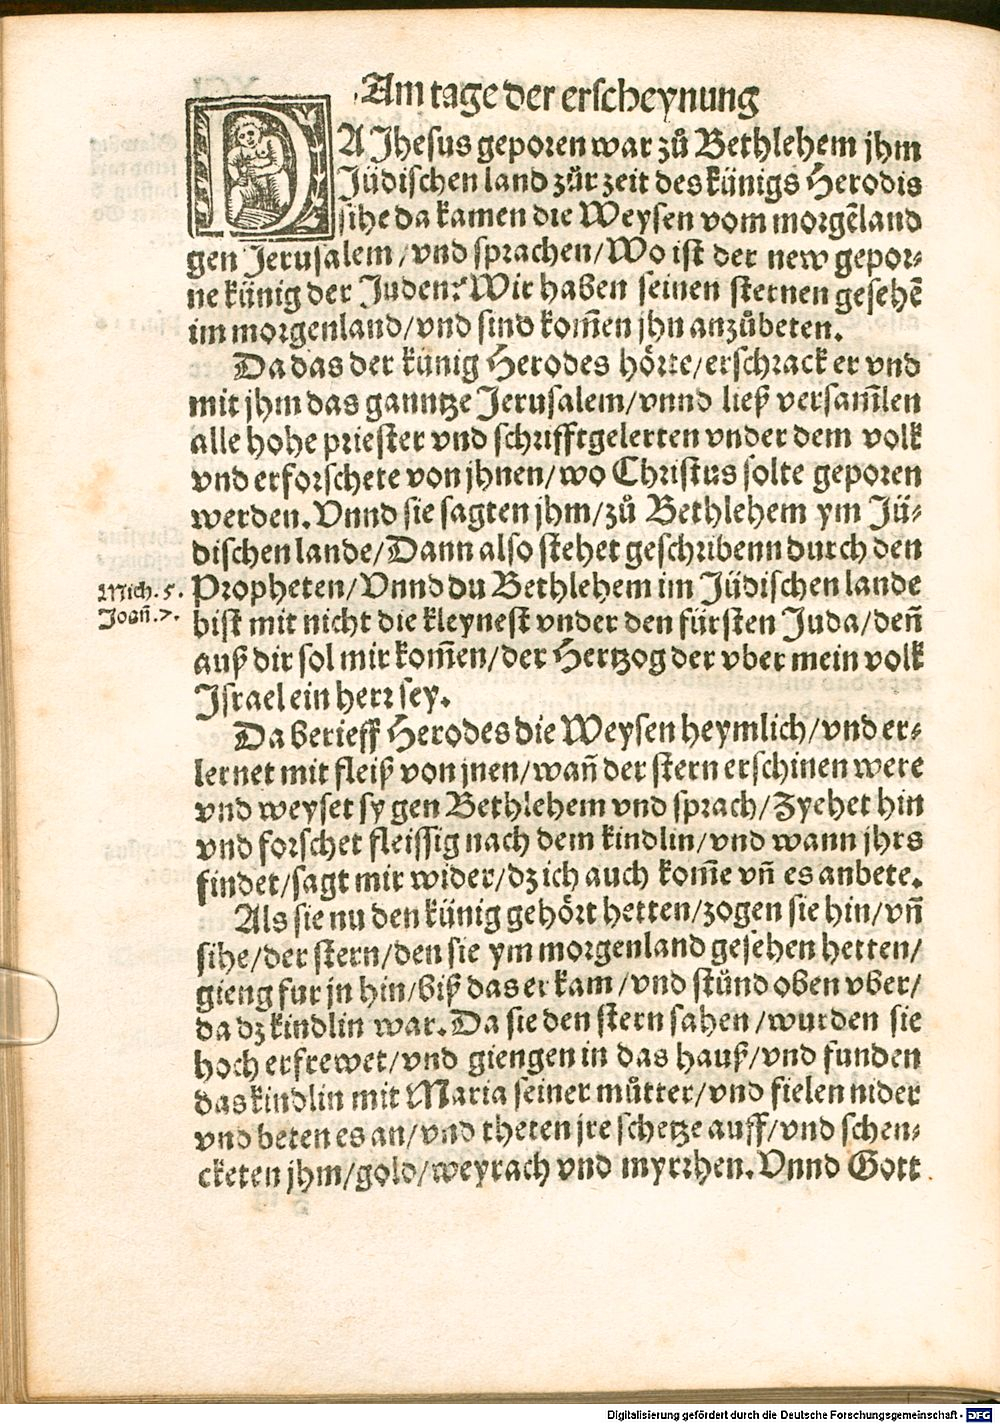 Am tage der erscheynung
DA Jhesus geporen war zů Bethlehem jhm
Jüdischen land zůr zeit des künigs Herodis
sihe da kamen die Weysen vom morgẽland
gen Jerusalem/vnd sprachen/Wo ist der new gepor-
ne künig der Juden? Wir haben seinen sternen gesehẽ
im morgenland/vnd sind kom̃en jhn anzůbeten.
Da das der künig Herodes hörte/erschrack er vnd
mit jhm das ganntze Jerusalem/vnnd ließ versam̃len
alle hohe priester vnd schrifftgelerten vnder dem volk
vnd erforschete von jhnen/wo Christus solte geporen
werden. Vnnd sie sagten jhm/zů Bethlehem ym Jü-
dischen lande/Dann also stehet geschribenn durch den
Mich. 5.
Joañ. 7.
Propheten/Vnnd du Bethlehem im Jüdischen lande
bist mit nicht die kleynest vnder den fürsten Juda/deñ
auß dir sol mir kom̃en/der Hertzog der vber mein volk
Israel ein herr sey.
Da berieff Herodes die Weysen heymlich/vnd er-
lernet mit fleiß von jnen/wañ der stern erschinen were
vnd weyset sy gen Bethlehem vnd sprach/Zyehet hin
vnd forschet fleissig nach dem kindlin/vnd wann jhrs
findet/sagt mir wider/dz ich auch kom̃e vñ es anbete.
Als sie nu den künig gehört hetten/zogen sie hin/vñ
sihe/der stern/den sie ym morgenland gesehen hetten/
gieng fur jn hin/biß das er kam/vnd stůnd oben vber/
da dz kindlin war. Da sie den stern sahen/wurden sie
hoch erfrewet/vnd giengen in das hauß/vnd funden
das kindlin mit Maria seiner můtter/vnd fielen nider
vnd beten es an/vnd theten jre schetze auff/vnd schen-
cketen jhm/gold/weyrach vnd myrrhen. Vnnd Gott
Digitalisierung gefördert durch die Deutsche Forschungsgemeinschaft - DFG